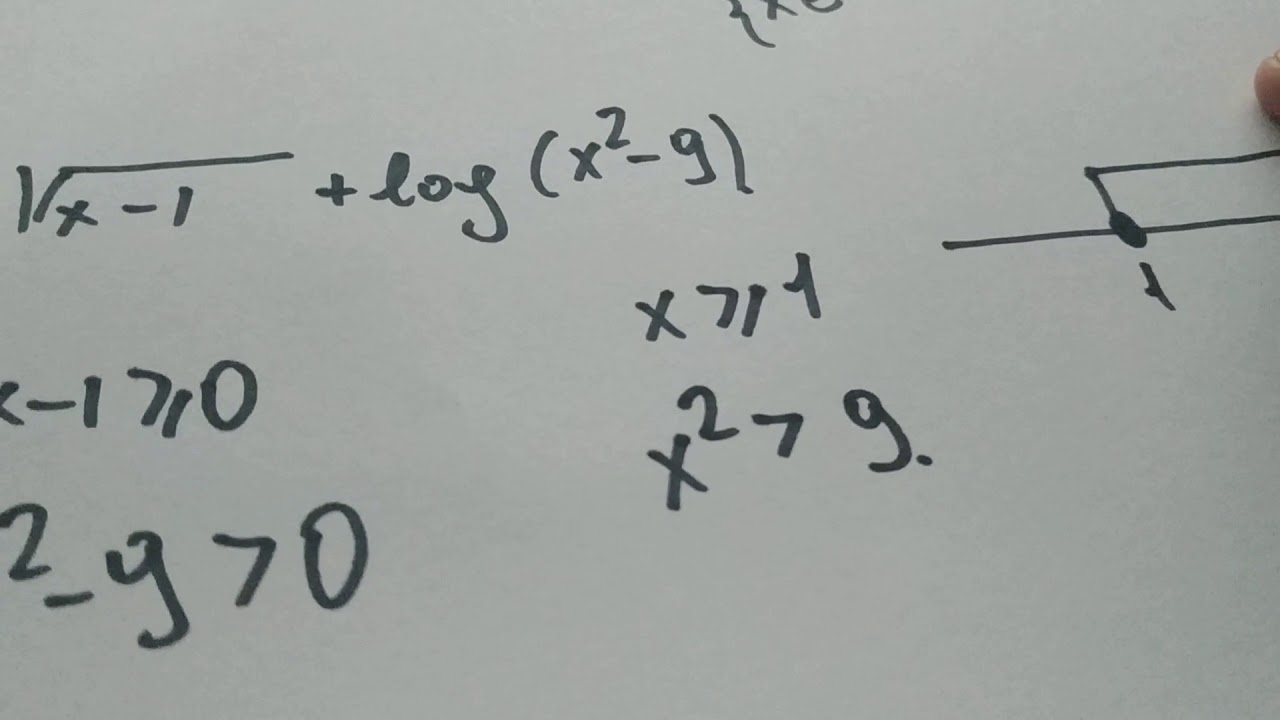 √x-1 + log (x²-9)
x ⩾ 1
1
-1 ⩾ 0
x² > 9.
² - 9 > 0